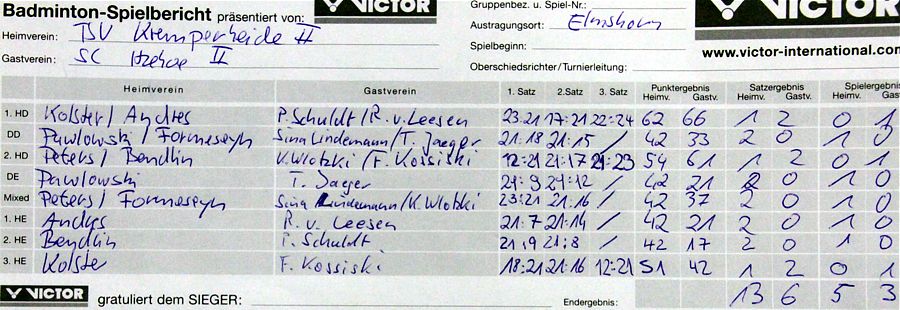 Badminton-Spielbericht präsentiert von: VICTOR
Gruppenbez. u. Spiel-Nr.: VICTOR
Heimverein: TSV Kremperheide II
Austragungsort: Elmshorn
Gastverein: SC Itzehoe II
Spielbeginn:
www.victor-international.com
Oberschiedsrichter/Turnierleitung:
Heimverein Gastverein 1. Satz 2. Satz 3. Satz Punktergebnis Heimv. Gastv. Satzergebnis Heimv. Gastv. Spielergebnis Heimv. Gastv.
1. HD Kolster/Andres P. Schuldt/R. v. Leesen 23:21 17:21 22:24 62 66 1 2 0 1
DD Pawlowski/Formeseyn Sina Lindemann/T. Jaeger 21:18 21:15 / 42 33 2 0 1 0
2. HD Peters/Bendlin K. Wlotzki/F. Kossiski 12:21 21:17 21:23 54 61 1 2 0 1
DE Pawlowski T. Jaeger 21:9 21:12 / 42 21 2 0 1 0
Mixed Peters/Formeseyn Sina Lindemann/K. Wlotzki 23:21 21:16 / 42 37 2 0 1 0
1. HE Andres R. v. Leesen 21:7 21:14 / 42 21 2 0 1 0
2. HE Bendlin P. Schuldt 21:9 21:8 / 42 17 2 0 1 0
3. HE Kolster F. Kossiski 18:21 21:16 12:21 51 42 1 2 0 1
VICTOR gratuliert dem SIEGER: Endergebnis: 13 6 5 3